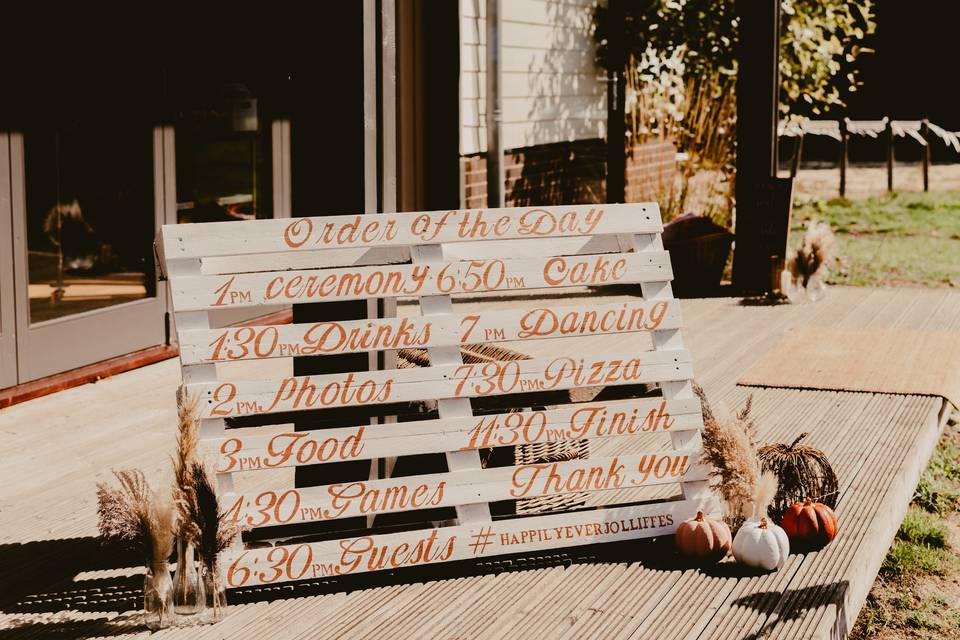 Order of the Day
1PM ceremony 6:50PM Cake
1:30PM Drinks 7PM Dancing
2PM Photos 7:30PM Pizza
3PM Food 11:30PM Finish
4:30PM Games Thank you
6:30PM Guests #HAPPILYEVERJOLLIFFES